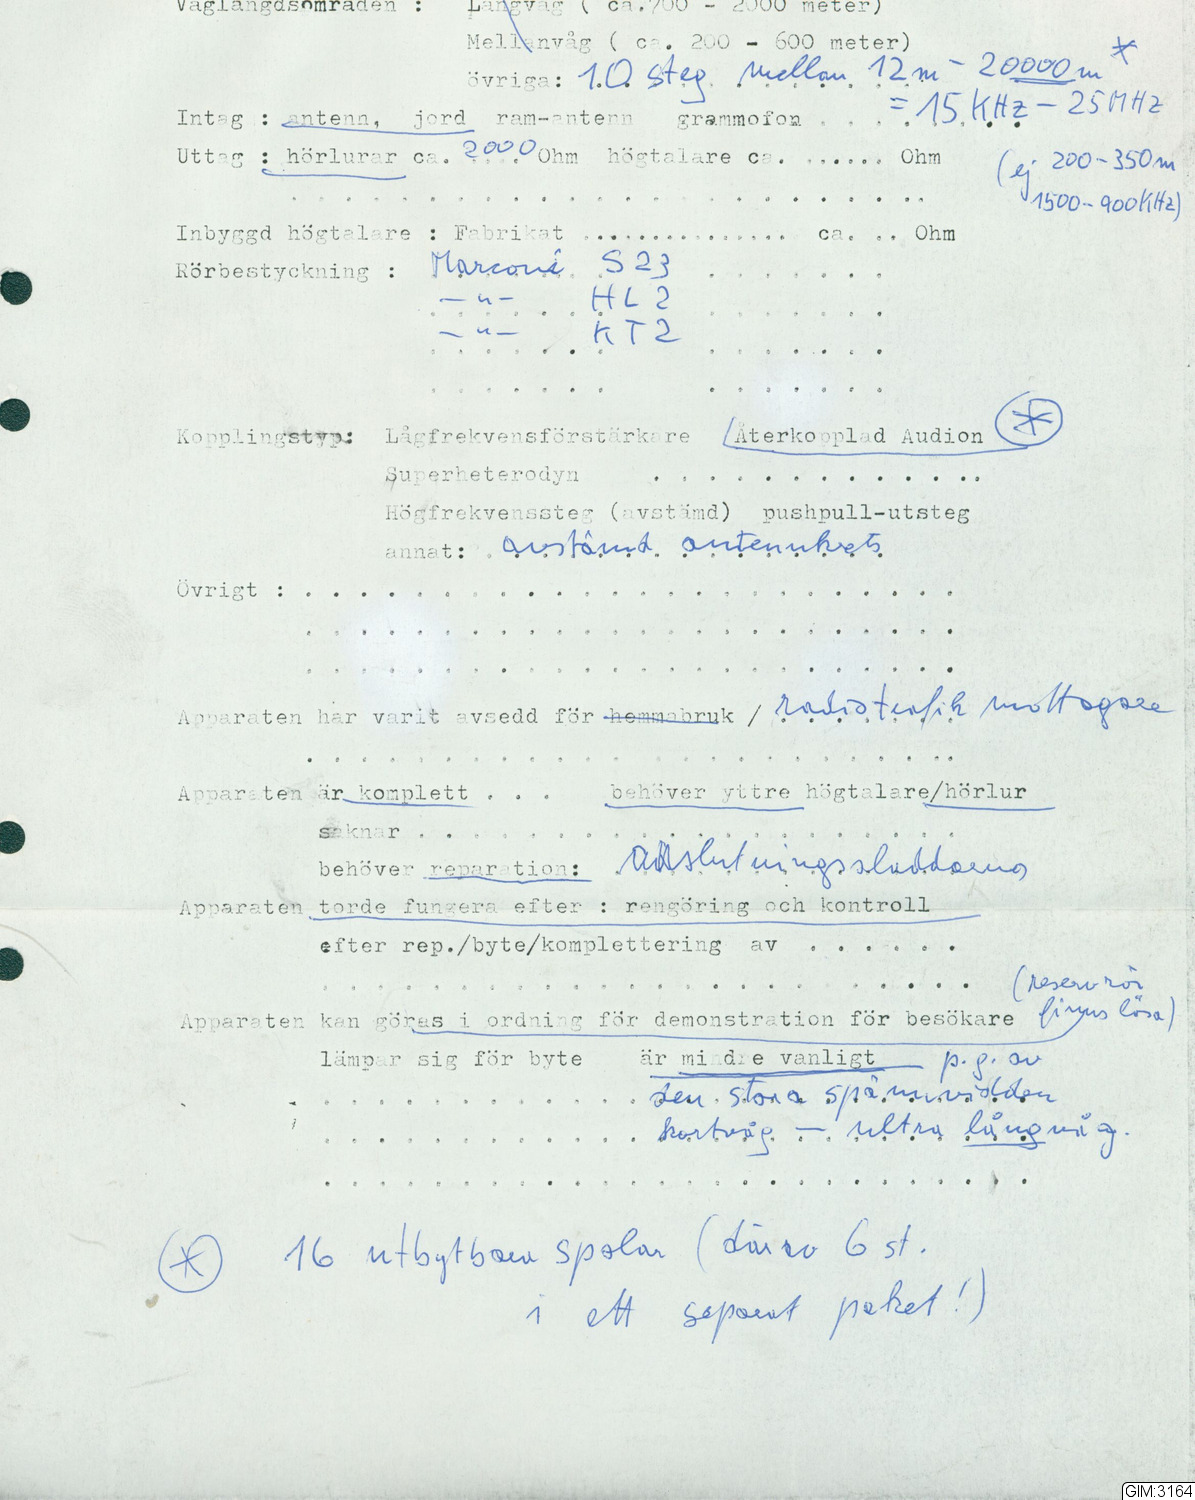 Våglängdsområden : Långväg ( ca.700 - 2000 meter)
Mellanvåg ( ca. 200 - 600 meter)
övriga: 10 steg mellan 12m - 20000m *
= 15 KHz - 25MHz
Intag : antenn, jord ram-antenn grammofon . . . . . .
Uttag : hörlurar ca. 2000 Ohm högtalare ca. ...... Ohm
(ej 200-350m
1500-900KHz)
Inbyggd högtalare : Fabrikat ............... ca. .. Ohm
Rörbestyckning : Marconi S23
—"— HL2
—"— KT2
Kopplingstyp: Lågfrekvensförstärkare Återkopplad Audion *
Superheterodyn . . . . . . . . . . . . .
Högfrekvenssteg (avstämd) pushpull-utsteg
annat: avstämd antennkrets
Övrigt : . . . . . . . . . . . . . . . . . . . . . . . .
Apparaten har varit avsedd för hemmabruk / radiotrafik mottagare
Apparaten är komplett . . . behöver yttre högtalare/hörlur
saknar . . . . . . . . . . . . . . . . . . . .
behöver reparation: Anslutningssladdarna
Apparaten torde fungera efter : rengöring och kontroll
efter rep./byte/komplettering av . . . . . .
(reservrör
finns lösa)
Apparaten kan göras i ordning för demonstration för besökare
lämpar sig för byte är mindre vanligt p.g. av
den stora spännvidden
kortvåg — ultra långvåg.
* 16 utbytbara spolar (därav 6 st.
i ett separat paket!)
GIM:3164